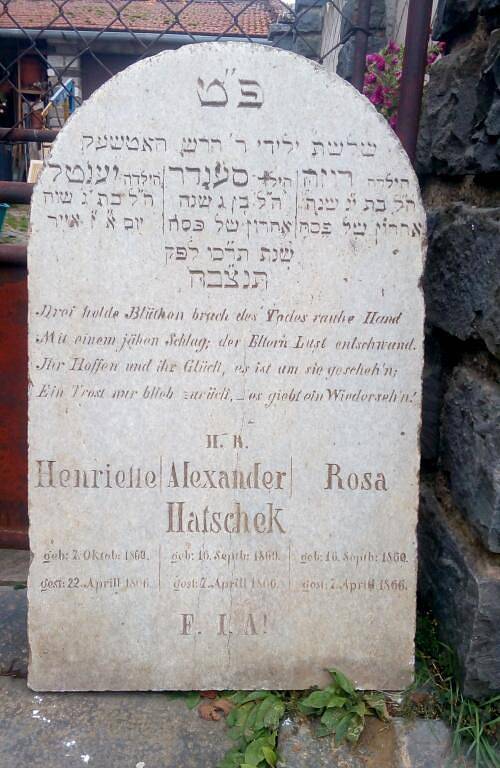 פ״ט
שלשת ילידי ר׳ הרש האטשעק
הילדה רייזה הילד סענדר הילדה יענטל
הל בת שנה ה״ל בן ג שנה ה״ל בת ג שנה
אהרון של פסח אהרון של פסח יום א אייר
שנת תרכו לפק
תנצבה
Drei holde Blüthen brach des Todes rauhe Hand
Mit einem jähen Schlag; der Eltern Lust entschwand.
Ihr Hoffen und ihr Glück, es ist um sie gescheh'n;
Ein Trost nur blieb zurück, es giebt ein Wiederseh'n!
H. R.
Henriette Alexander Rosa
Hatschek
geb: 7. Oktob: geb: 16. Septb: geb: 16. Septb:
gest: 22. Aprill 1866. gest: 7. Aprill 1866. gest: 7. Aprill 1866.
F. I. A!